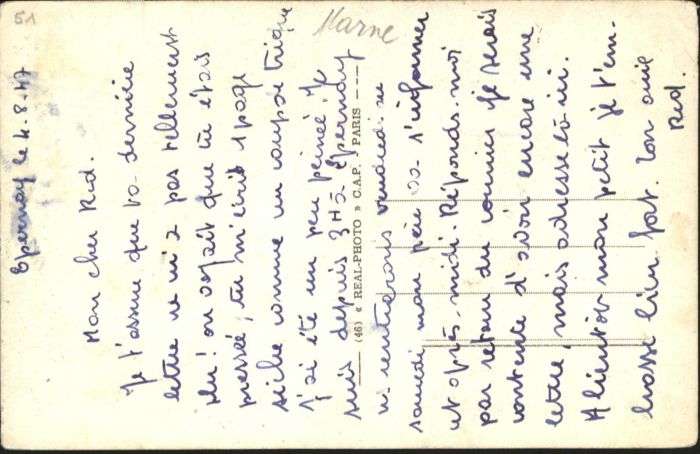 51
Marne
Epernay le 4.8.47
Mon cher Rid.
Je t'assure que ta dernière
lettre ne m'a pas tellement
plu! on voyait que tu étais
pressé, tu m'écris 1 page
sèche comme un coup de trique
j'ai été un peu peinée. Je
suis depuis 3H à Epernay
(46) « REAL-PHOTO » C.A.P. - PARIS
ns rentrerons vendredi ou
samedi, mon père va s'informer
cet après-midi. Réponds-moi
par retour du courrier je serais
contente d'avoir encore une
lettre, mais adresse ici.
A bientôt mon petit je t'em-
brasse bien fort. Ton amie
Rid.